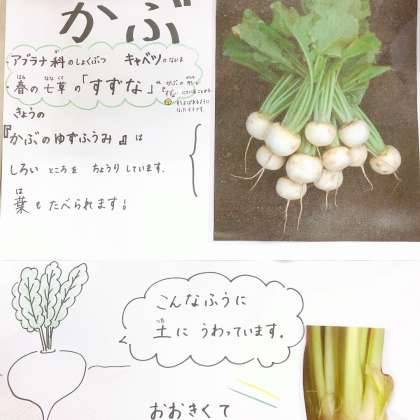 かぶ
・アブラナ科のしょくぶつ キャベツのなかま
・春の七草の「すずな」
はる ななくさ
きょうの
『かぶのゆずふうみ』は
しろい ところを ちょうり しています.
は
葉 も たべられます!
こんなふうに
土に うわっています.
おおきくて